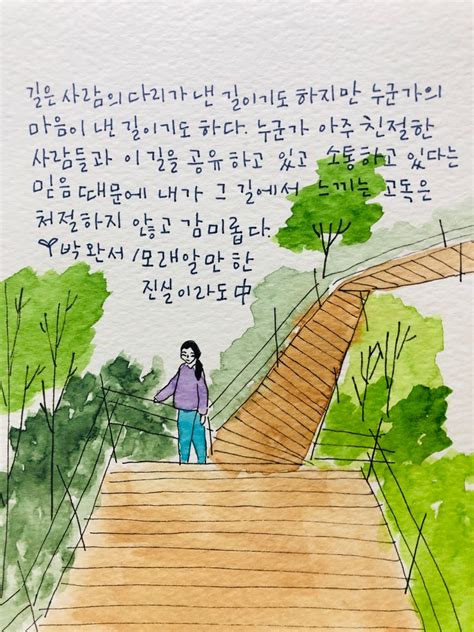 길은 사람의 다리가 낸 길이기도 하지만 누군가의
마음이 낸 길이기도 하다. 누군가 아주 친절한
사람들과 이 길을 공유하고 있고 소통하고 있다는
믿음 때문에 내가 그 길에서 느끼는 고독은
처절하지 않고 감미롭다.
박완서 / 모래알만 한
진실이라도 中